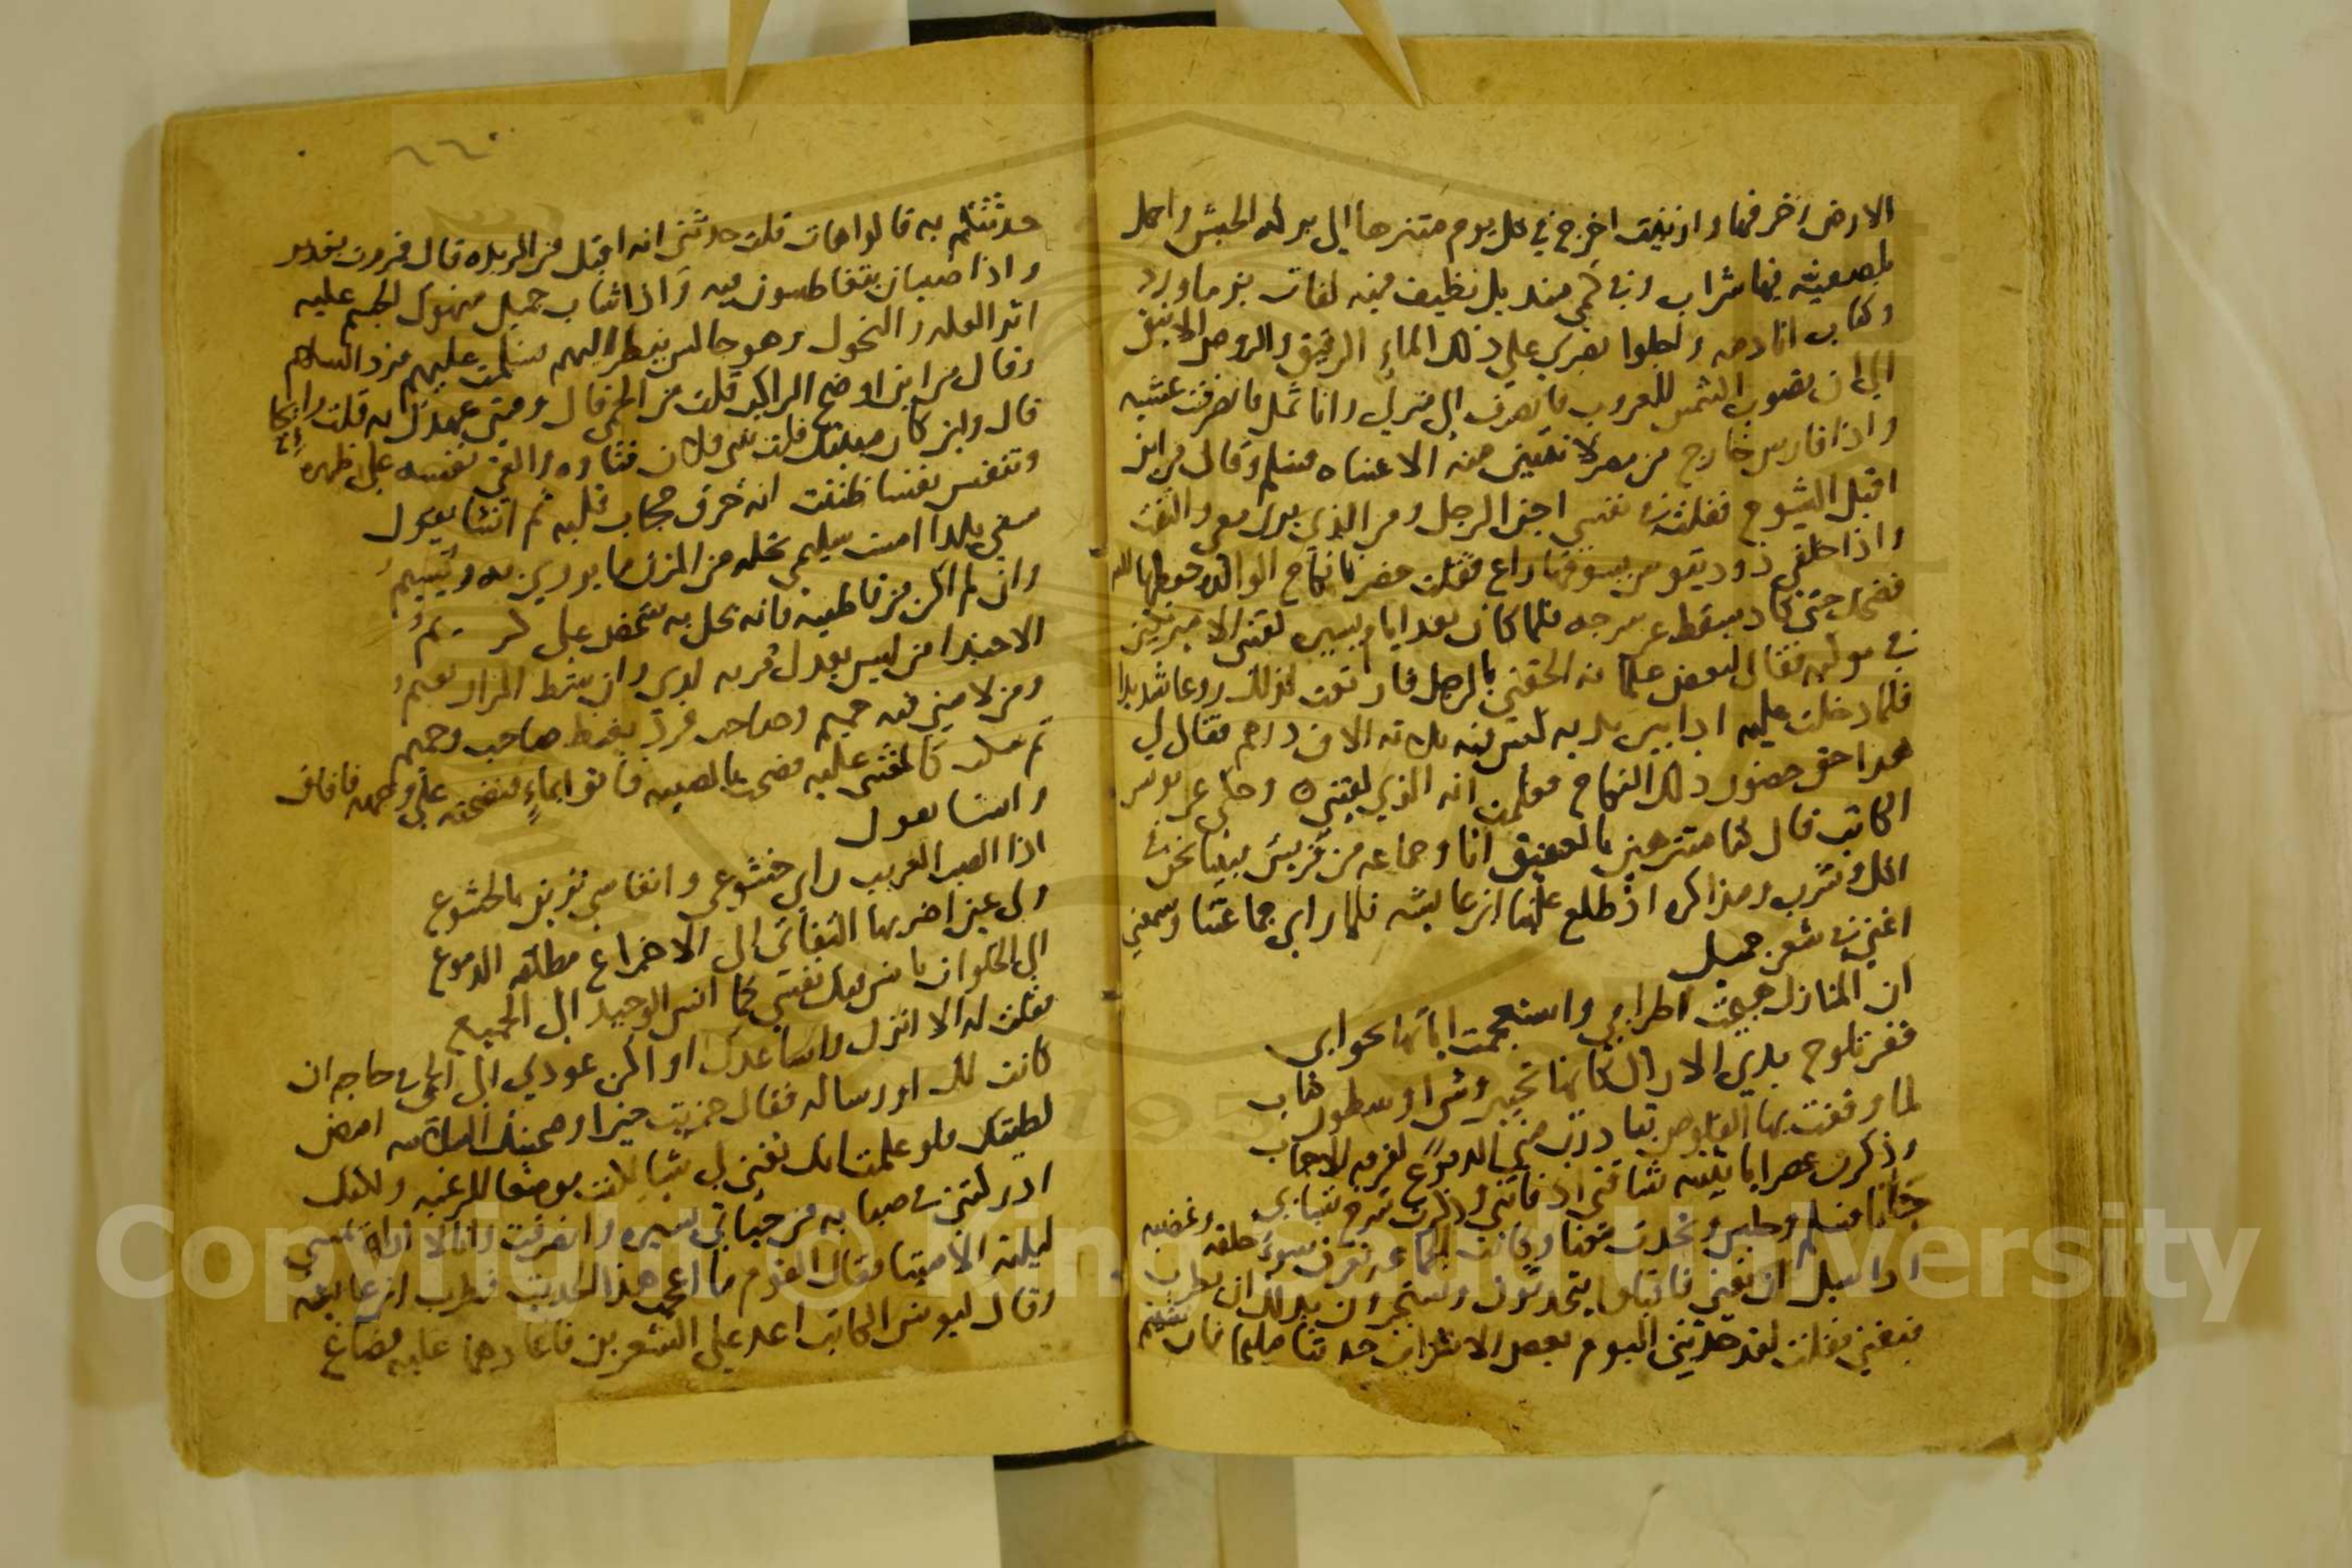 الارض زخرفها وازينت اخرج في كل يوم متنزها الى بركة الحبش واحمل
فيها شراب وفي كمي منديل نظيف فيه
وكتاب انا دمه واجلوا بصري على ذلك الماء الرقيق والروض الانيق
الى ان تصوب الشمس للغروب فانصرف الى منزلي وانا ثمل فانصرفت عشيه
واذا فارس خارج من مصر لا تقتبين منه الا عيناه فسلم وقال من اين
اقبل الشيوخ فقلت في نفسي اجن الرجل ومن الذي يرى معي والتفت
واذا خلفي يسوقها راع فقلت حضرنا نكاح الوالده حفظها الله
فضحك حتى كاد يسقط عن سرجه فلما كان بعد ايام يسيره لقيني الامير
في موكبه فقال لبعض غلمانه الحقني بالرجل فارتعت لذلك روعا شديدا
فلما دخلت عليه اذا بين يديه ثلاثه الاف درهم فقال لي
هذا حق حضور ذلك النكاح فعلمت انه الذي لقيني وحكى عن يونس
الكاتب قال كنا متنزهين بالعقيق انا وجماعه من قريش فبينا نحن في
اكل وشرب ومذاكره اذ طلع علينا ابن عائشه فلما راى جماعتنا وسمعني
اغني في شعر جميل
ان المنازل هيجت اطرابي واستعجمت اياتها بجوابي
قفر تلوح بذي الاراك كانها تحبير وشي او سطور كتاب
لما وقفت بها القلوص تبادرت مني الدموع لفرقه الاحباب
وذكرت عصرا يا بثينه شاقني اذ فاتني وذكرت شرخ شبابي
جانا فسلم وجلس وتحدث معنا وكانت الجماعه تعرف سوء خلقه وغضبه
اذا سيل ان يغني فاقبلوا يتحدثون ويستجرون بذلك ان يطرب
فيغني فقلت لقد حدثني اليوم بعض الاعراب حديثا مليحا فان شيتم
٢٢٠
حدثتكم به قالوا هات قلت حدثني انه اقبل من الربذه قال فمررت بغدير
واذا صبيان يتغاطسون فيه واذا شاب جميل منهوك الجسم عليه
اثر العله والنحول وهو جالس ينظر اليهم فسلمت عليهم فرد السلام
وقال من اين اوضح الراكب قلت من الحمى قال ومتى عهدك به قلت رايحا
قال واين كان مبيتك قلت ببني فلان فتاوه والقى بنفسه على ظهره
وتنفس نفسا ظننت انه خرق حجاب قلبه ثم انشا يقول
سقى بلدا امست سليمى تحله من المزن ما يروي به ويسيم
وان لم اكن من قاطنيه فانه يحل به شخص علي كريم
الا حبذا من ليس يعدل قربه لدي وان شط المزار نعيم
ومن لامني فيه حميم وصاحب فرد بغيظ صاحب وحميم
ثم سكت كالمغشي عليه فصحت بالصبيه فاتوا بماء فنضحته على وجهه فافاق
وانشا يقول
اذا الصب الغريب راى خشوعي وانفاسي تزين بالخشوع
ولي عين اضر بها التفاتي الى الاجزاع مطلقه الدموع
الى الخلوات يانس فيك نفسي كما انس الوحيد الى الجميع
فقلت له الا انزل واساعدك او اكر عودي الى الحمى في حاجه ان
كانت لك او رساله فقال جزيت خيرا وصحبتك السلامه امض
لطيتك فلو علمت انك تغني لي شيا لكنت موضعا للرغبه ولكنك
ادركتني في صبابه من حياتي يسيره وانصرفت وانا لا اراه يمسي
ليلته الا ميتا فقال القوم ما اعجب هذا الحديث فطرب ابن عايشه
وقال ليونس الكاتب اعد علي الشعرين فاعادهما عليه فصاغ
Copyright © King Saud University
1957